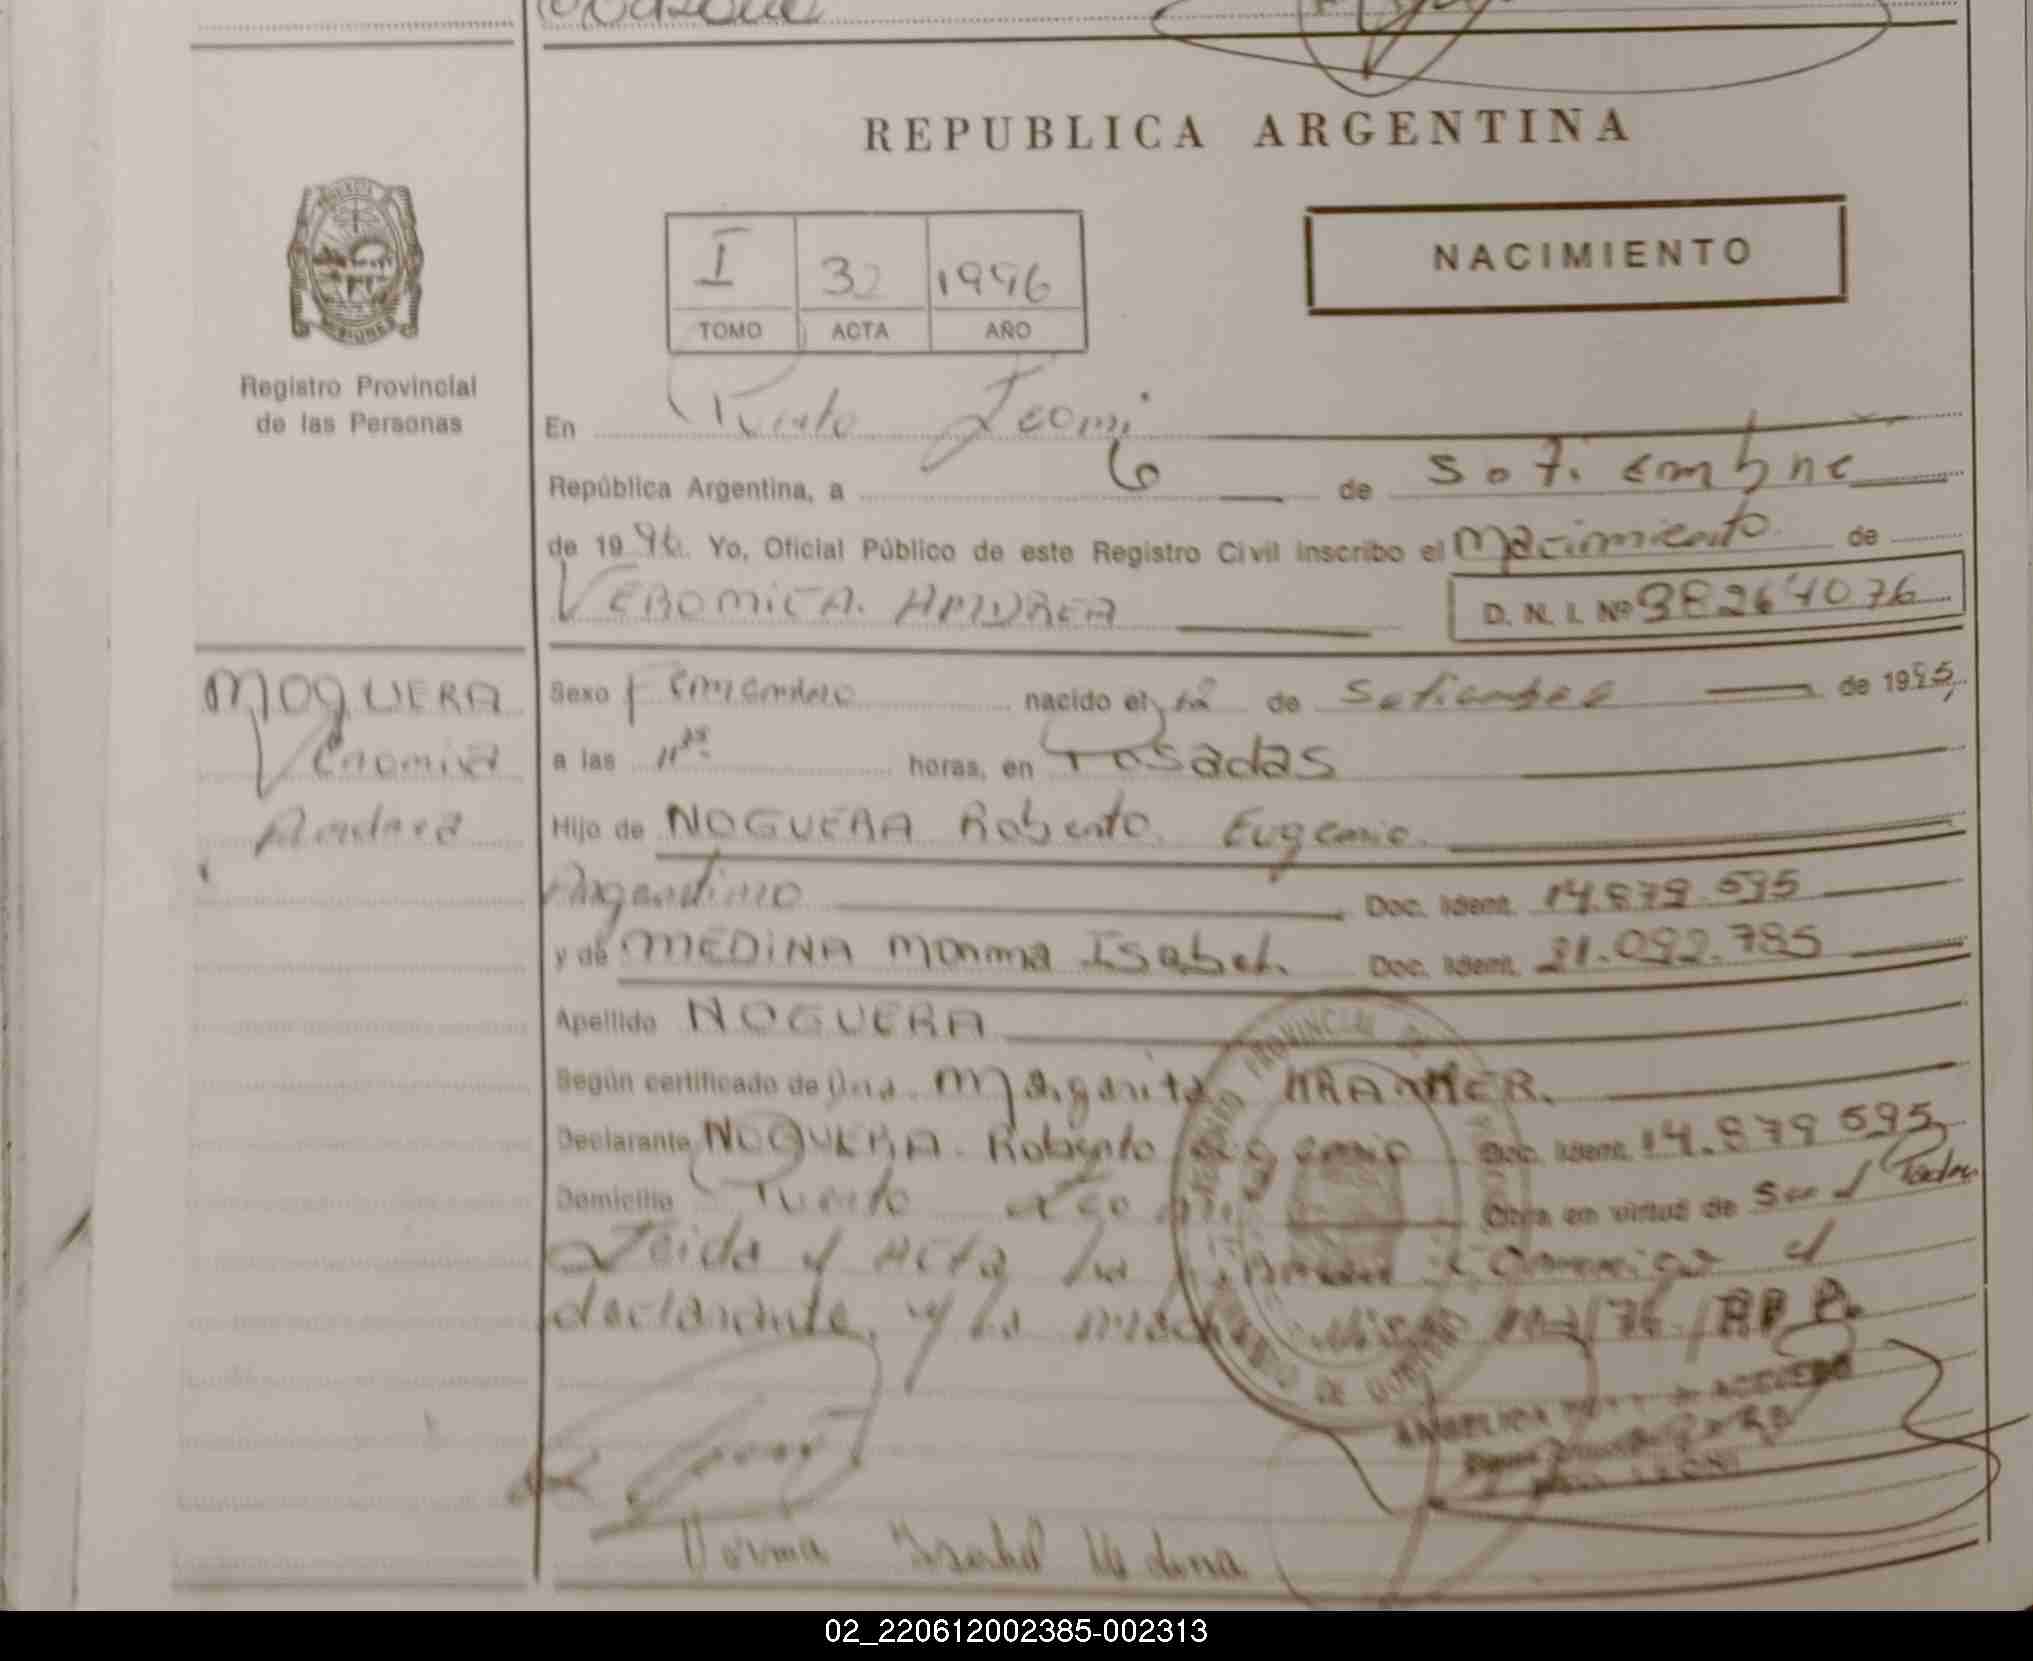 REPUBLICA ARGENTINA
NACIMIENTO
I 32 1996
TOMO ACTA AÑO
Registro Provincial
de las Personas
En Puerto Leoni
República Argentina, a 6 de Setiembre
de 1996. Yo, Oficial Público de este Registro Civil inscribo el Nacimiento de
VERONICA. ANDREA D. N. I. Nº 38264076
NOGUERA
Veronica
Andrea
Sexo Femenino nacido el de Setiembre de 1995,
a las horas, en Posadas
Hijo de NOGUERA Roberto Eugenio
Argentino Doc. Ident. 14.879.595
y de MEDINA Norma Isabel. Doc. Ident. 21.092.785
Apellido NOGUERA
Según certificado de Dra. Margarita KRAMER.
Declarante NOGUERA. Roberto Eugenio Doc. Ident. 14.879 595
Domicilio Puerto Leoni Obra en virtud de Ser el Padre
Leida el Acta la firman conmigo el
declarante, y la madre
REGISTRO PROVINCIAL DE
ANGELICA ACEVEDO
LEONI
Norma Isabel Medina
02_220612002385-002313